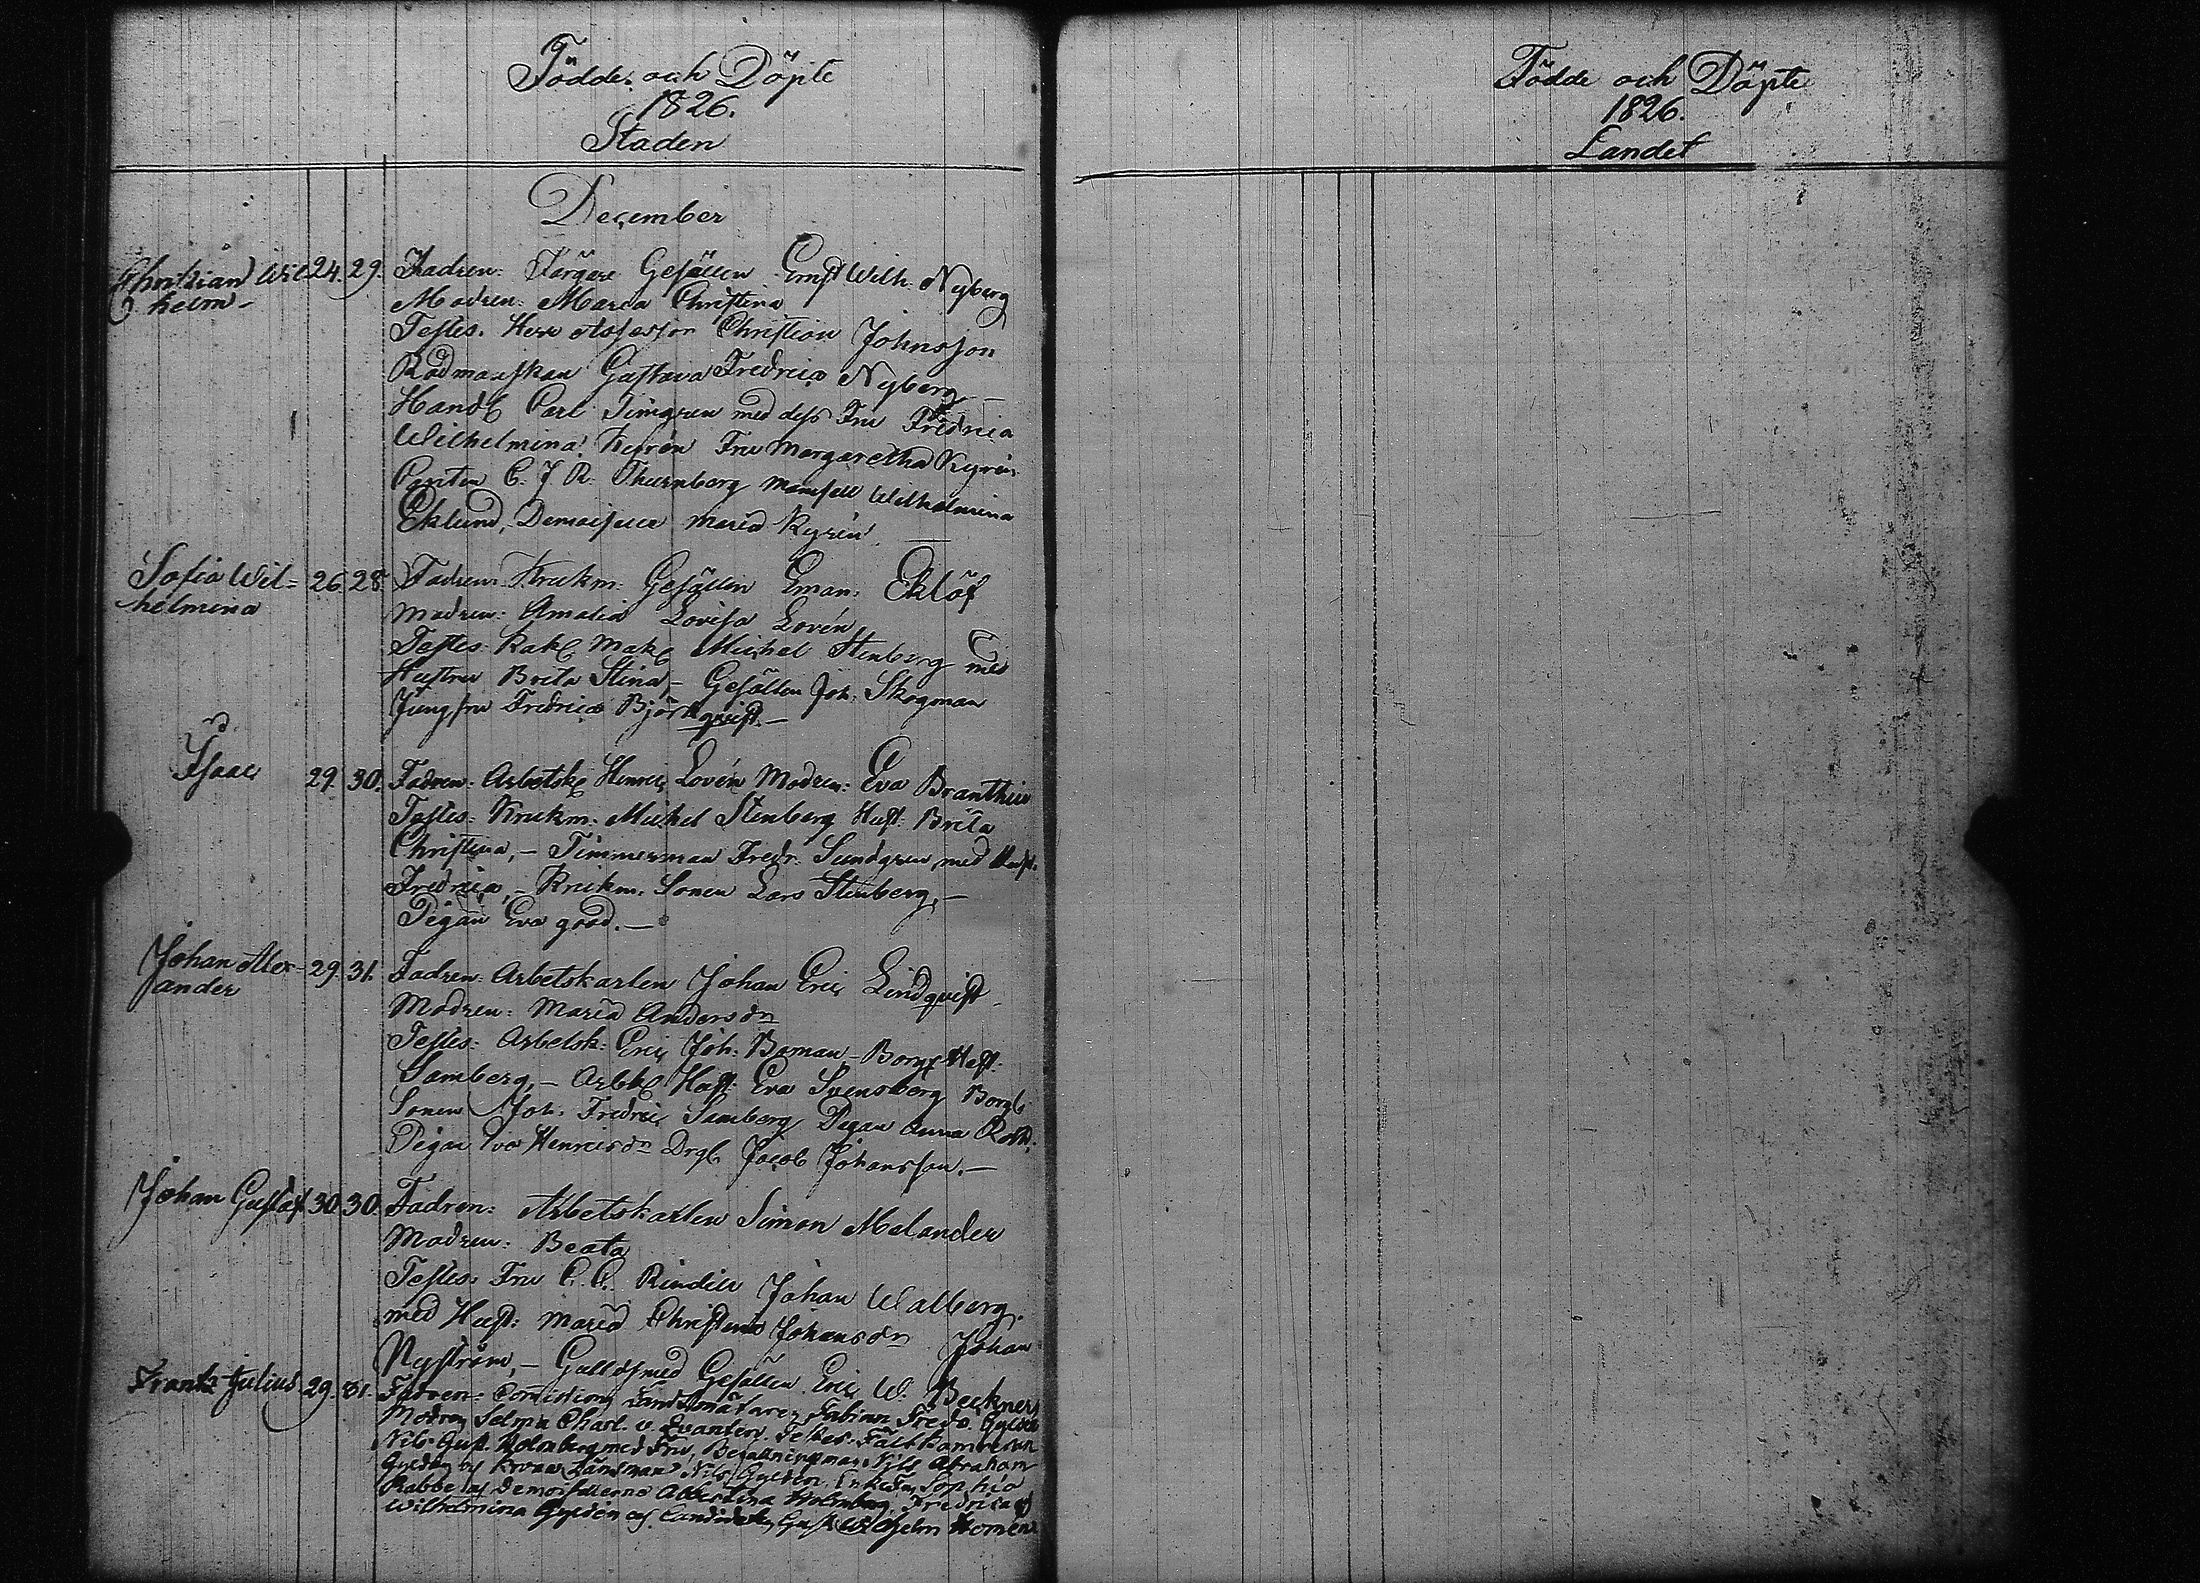 Födde och Döpte
1826.
Staden
December
Christian Wil 24. 29. Fadren: Färgare Gesällen Ernst Wilh. Nyberg
helm - Modren: Maria Christina
Testes. Herr Assessor Christian Johnsson
Rådmanskan Gustava Fredrica Nyberg -
Handl Carl Timgren med dess Fru Fredrica
Wilhelmina Kyrén Fru Margaretha Kyrén
C. J. R. Thurnberg Mamsell Wilhelmina
Eklund, Demoiselle Maria Kyrén. -
Sofia Wil= 26. 28. Fadren: Krukm: Gesällen Eman. Eklöf
helmina Modren: Amalia Lovisa Lovén
Testes: Kakl. Mak. Michel Stenberg med
Hustru Brita Stina, - Gesällen Joh. Skogman
Jungfru Fredrica Björkqvist. -
Isaac 29. 30. Fadren: Arbetsk Henric Lovén Modren: Eva
Testes: Krukm: Michel Stenberg Hust: Brita
Christina, - Timmerman Fredr. Sundgren med Hust.
Fredrica, - Krukm: Sonen Lars Stenberg, -
Pigan Eva good. -
Johan Alex- 29. 31. Fadren: Arbetskarlen Johan Eric Lindqvist
ander Modren: Maria Andersdn
Testes: Arbetsk: Eric Joh: Boman, - Borg. Hust.
Samberg, - Arbk Hust. Eva Svensberg Borg.
Sonen Joh. Fredric Samberg Pigan Anna
Pigan Eva Henricsdn Drg. Jacob Johansson. -
Johan Gustaf 30. 30. Fadren: Arbetskarlen Simon Melander
Modren: Beata
Testes: Fru C. C. Rindell Johan Walberg.
med Hust: Maria Christina Johansdn Johan
Nyström, - Gulldsmed Gesällen Eric W. Beckner,
Frantz Julius 29. 31. Fadren: Comission Landtmätaren Fabian Fredr. Gyldén
Modren Selma Charl. v. Zvanten. Testes: Fältkamreren
Nils Gust. Holmberg med Fru, Befallningsman Nils Abraham
Gyldén och Krono Länsman Nils Gyldén. Enkefru Sophia
Rabbe och Demoisellerna Albertina Holmberg, Fredrica och
Wilhelmina Gyldén och Candidaten Gust. Wilhelm Homén
Födde och Döpte
1826.
Landet